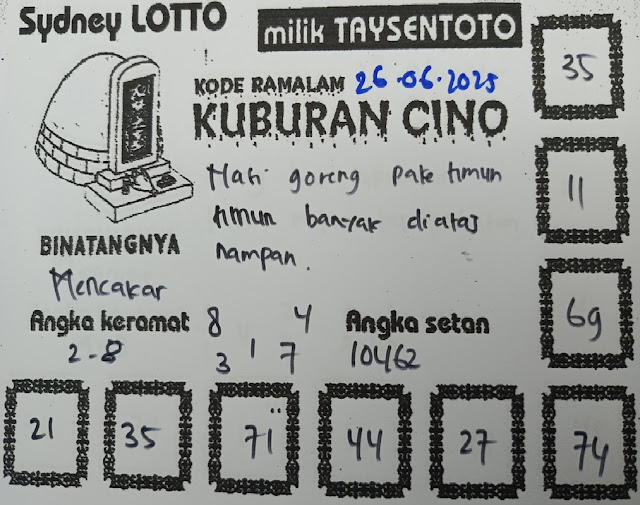 Sydney LOTTO
milik TAYSENTOTO
KODE RAMALAM 26-06-2025
KUBURAN CINO
Hati goreng pake timun
timun banyak diatas
nampan.
BINATANGNYA
Mencakar
Angka keramat
2-8
8 4
3 1 7
Angka setan
10462
35
11
69
21
35
71
44
27
74